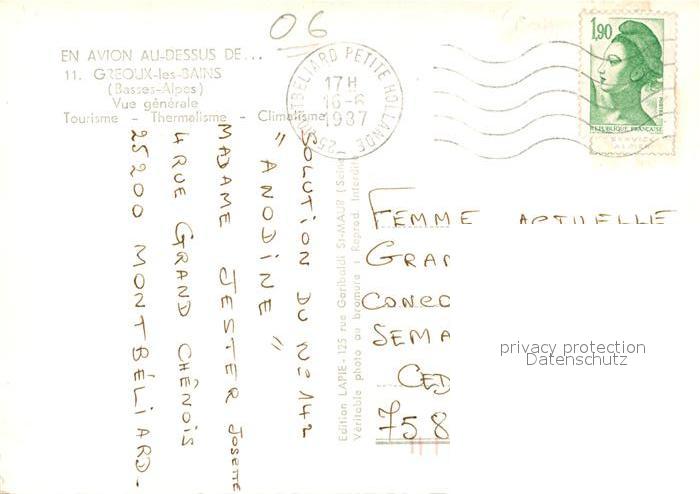 06
EN AVION AU-DESSUS DE...
11. GREOUX-les-BAINS
(Basses-Alpes)
Vue générale
Tourisme - Thermalisme - Climatisme
25 MONTBELIARD PETITE HOLLANDE
17H
16-6
1987
1,90
POSTES
REPUBLIQUE FRANÇAISE
SOLUTION DU N° 142
" ANODINE "
MADAME JESTER JOSETTE
4 RUE GRAND CHÊNOIS
25200 MONTBÉLIARD.
Edition LAPIE - 125 rue Garibaldi St-MAUR (Seine
Véritable photo au bromure : Reprod. Interdite
FEMME ACTUELLE
GRA
CONCO
SEMA
CED
758
privacy protection
Datenschutz